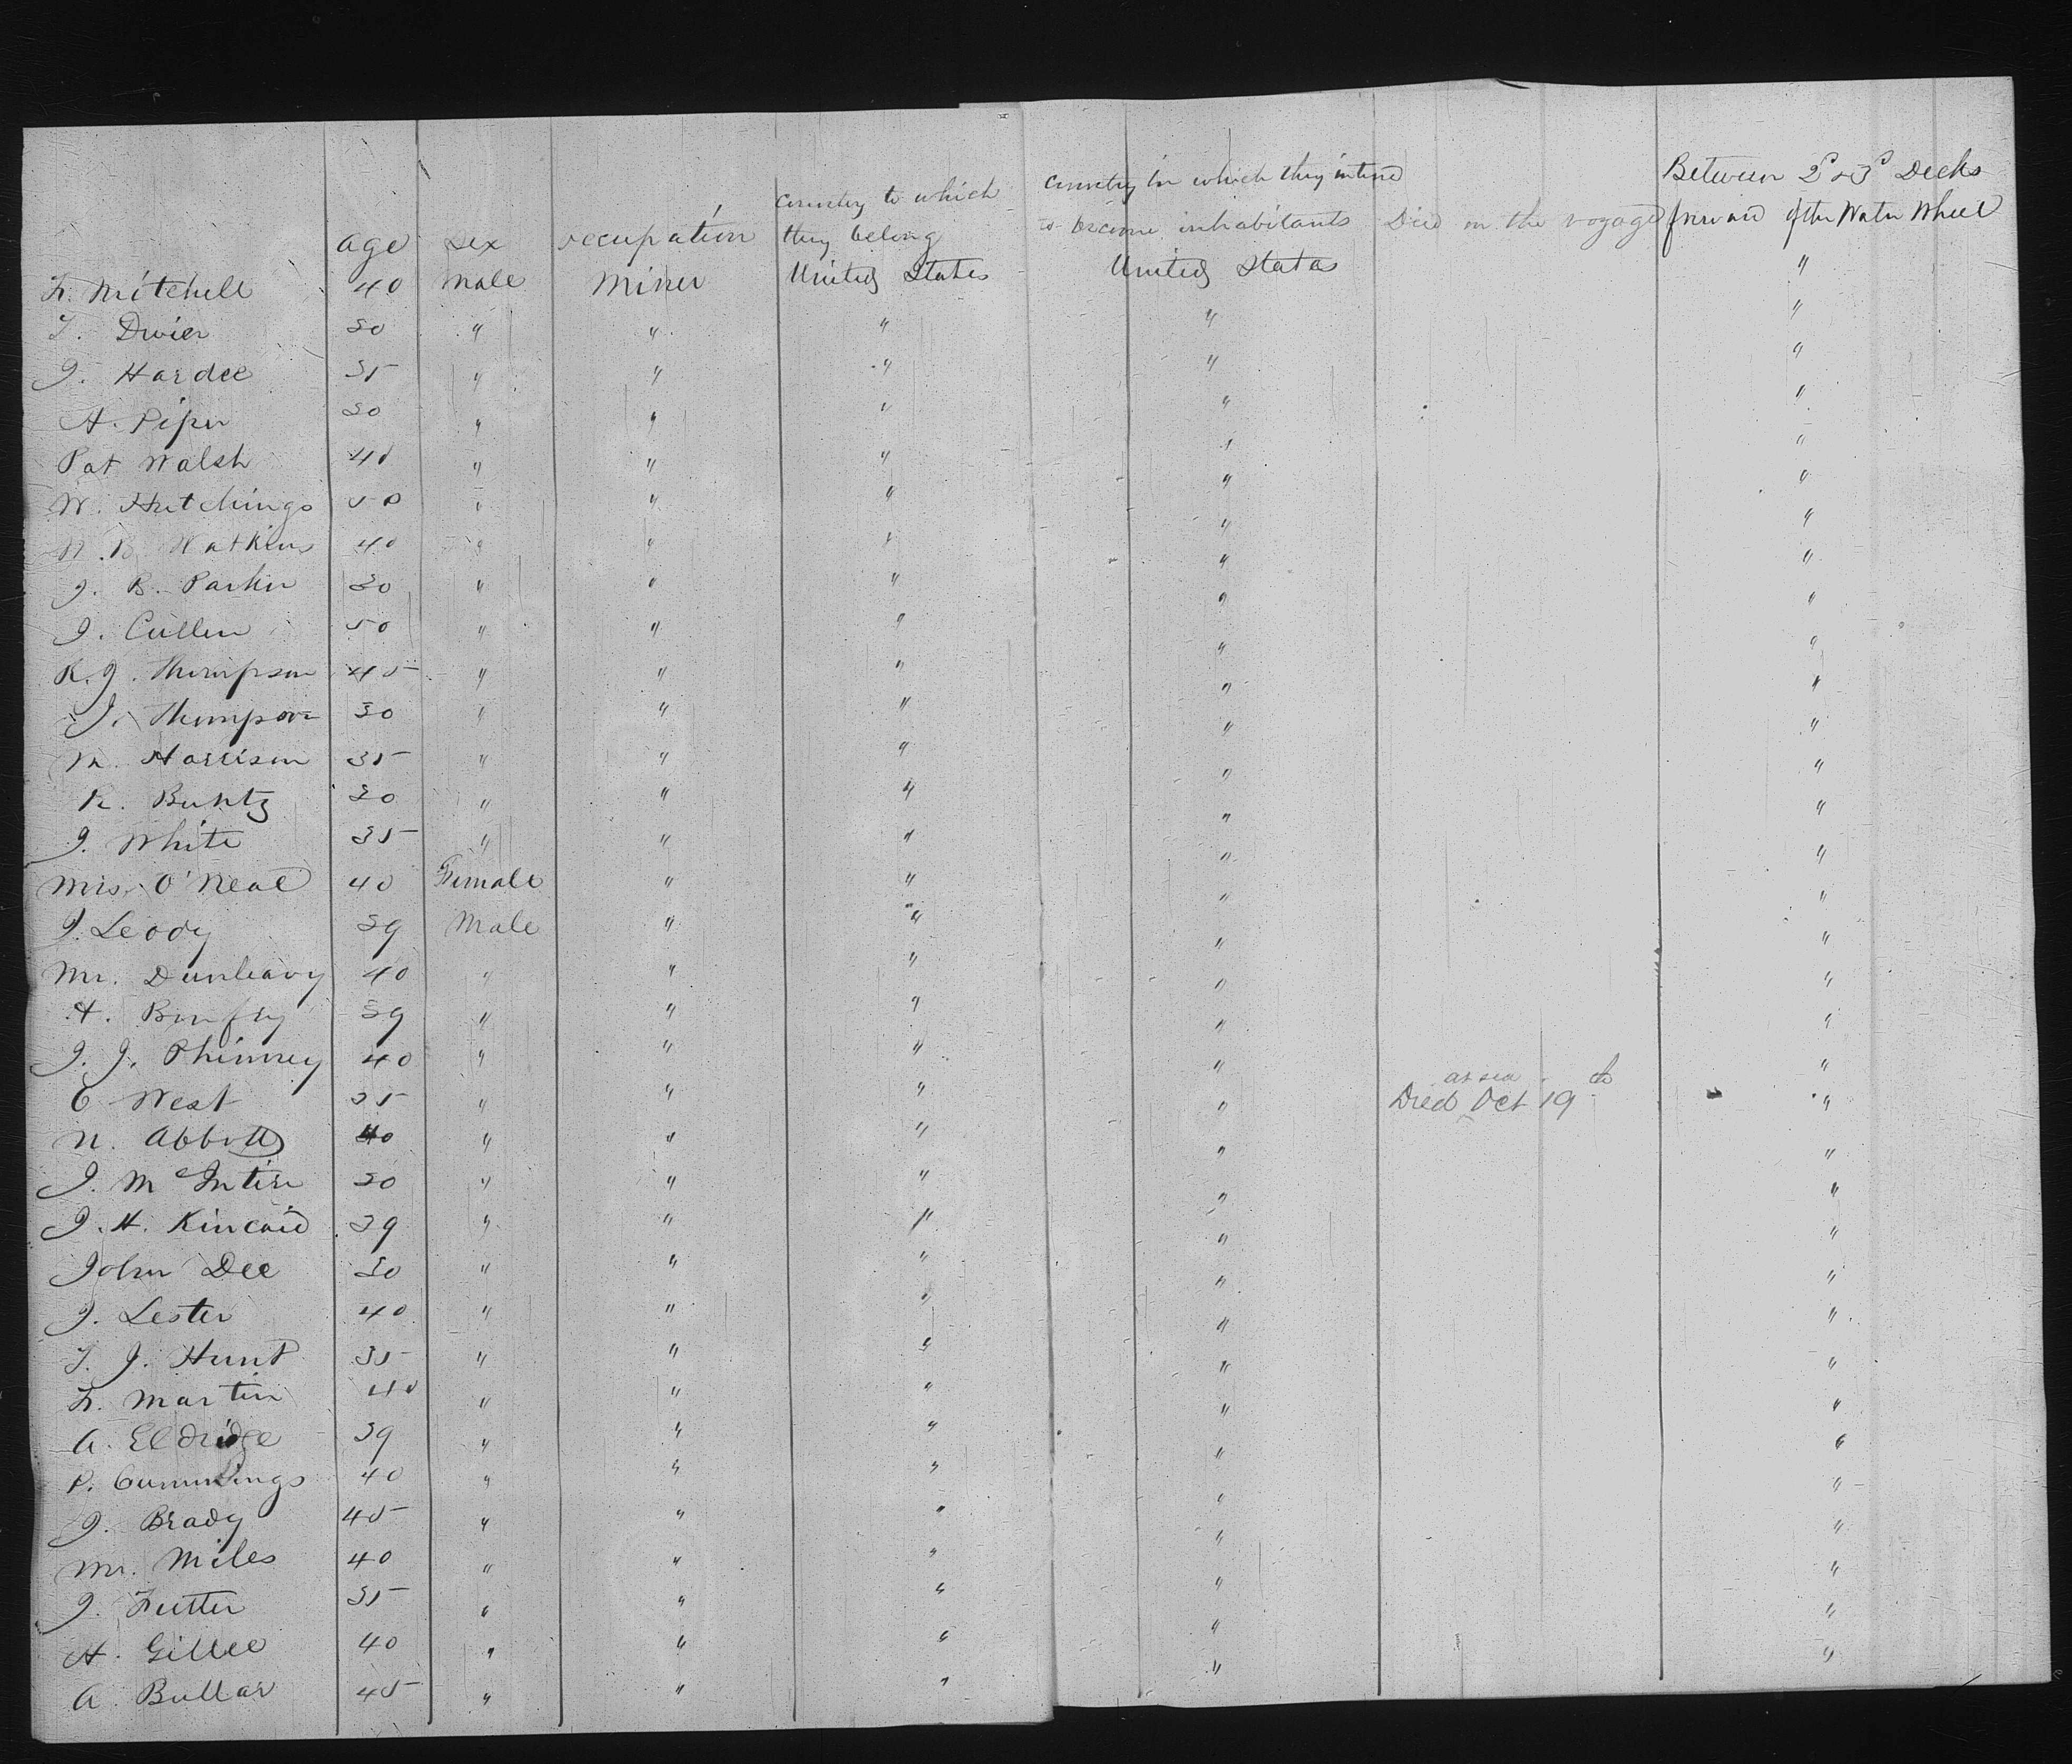 age sex occupation country to which they belong country in which they intend to become inhabitants Died on the voyage Between 2d & 3d Decks forward of the Water Wheel
F. Mitchell 40 Male Miner United States United States "
T. Dwier 30 " " " " "
J. Hardee 35 " " " " "
A. Piper 30 " " " " "
Pat Walsh 40 " " " " "
W. Hutchings 50 " " " " "
Watkins 40 " " " " "
J. B. Parker 30 " " " " "
J. Cullen 50 " " " " "
R. J. Thompson 45 " " " " "
J. Thompson 30 " " " " "
M. Harrison 35 " " " " "
R. Buntz 30 " " " " "
J. White 35 " " " " "
Mrs. O'Neal 40 Female " " " "
J. Leody 39 Male " " " "
Mr. Dunleavy 40 " " " " "
A. 39 " " " " "
J. J. Phinney 40 " " " " "
E West 35 " " " " Died at sea Oct 19th "
N. Abbott 40 " " " " "
J. McIntire 30 " " " " "
J. H. Kincaid 39 " " " " "
John Dee 30 " " " " "
J. Lester 40 " " " " "
T. J. Hunt 35 " " " " "
F. Martin 40 " " " " "
A. Eldridge 39 " " " " "
P. Cummings 40 " " " " "
J. Brady 45 " " " " "
Mr. Miles 40 " " " " "
J. Futter 35 " " " " "
A. Gillee 40 " " " " "
A. Bullar 45 " " " "